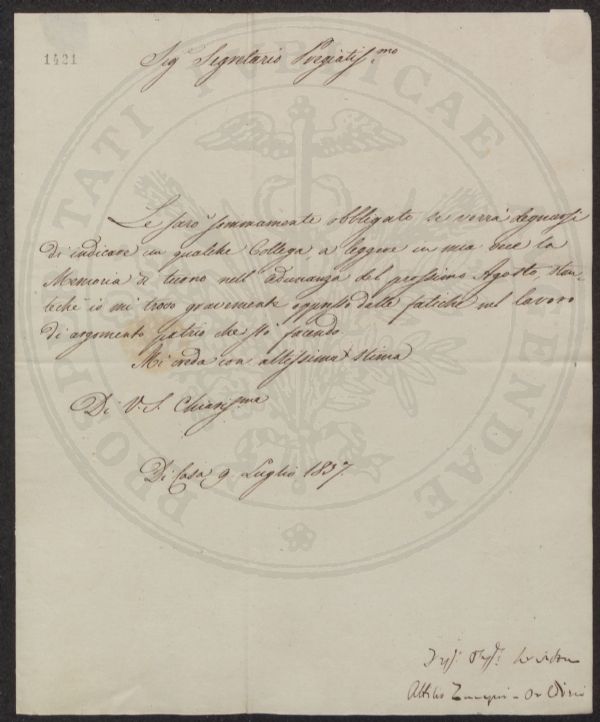 1421
Sig Segretario Pregiatiss.mo
Le sarò sommamente obbligato se vorrà degnarsi
di indicare un qualche Collega a leggere in mia vece la
Memoria di turno nell'Adunanza del prossimo Agosto, stan-
teché io mi trovo gravemente oppresso dalle fatiche nel lavoro
di argomento patrio che stò facendo.
Mi creda con altissima stima
Di V. S. Chiariss.ma
Di Casa 9 Luglio 1837.
Attilio Zuccagni = Orlandini
PROSPERITATI PUBLICAE AUGENDAE